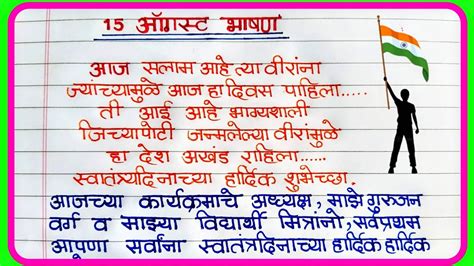 15 ऑगस्ट भाषण
आज सलाम आहे त्या वीरांना
ज्यांच्यामुळे आज हा दिवस पाहिला.....
ती आई आहे भाग्यशाली
जिच्यापोटी जन्मलेल्या वीरांमुळे
हा देश अखंड राहिला......
स्वातंत्र्यदिनाच्या हार्दिक शुभेच्छा.
आजच्या कार्यक्रमाचे अध्यक्ष, माझे गुरुजन
वर्ग व माझ्या विद्यार्थी मित्रांनो, सर्वप्रथम
आपणा सर्वांना स्वातंत्रदिनाच्या हार्दिक हार्दिक